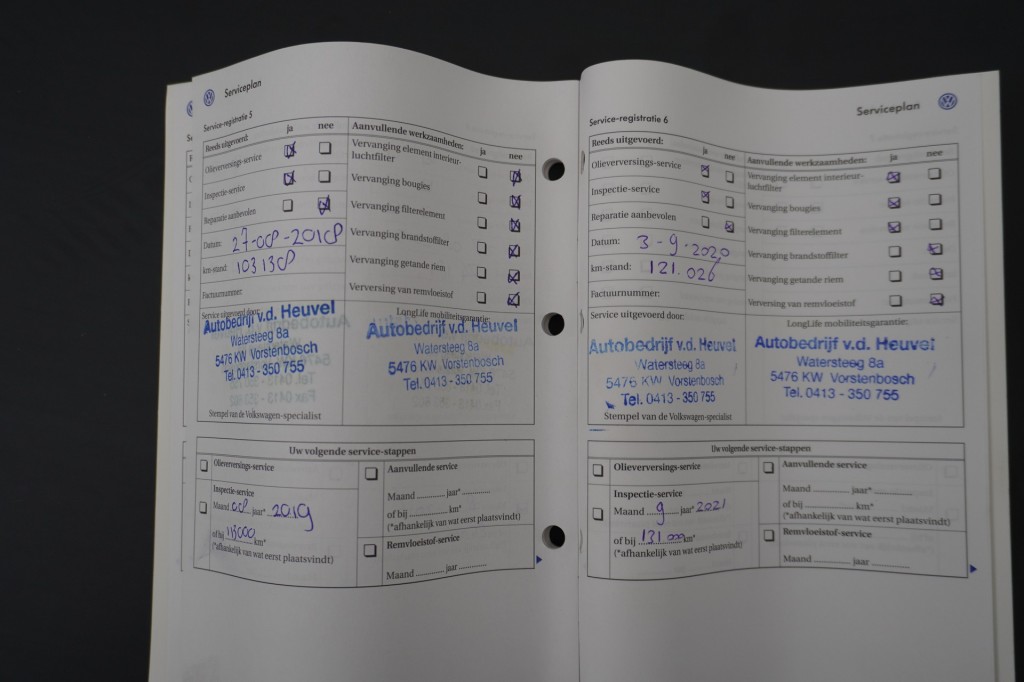 Serviceplan
Service-registratie 5
Reeds uitgevoerd: ja nee
Olieverversings-service
Inspectie-service
Reparatie aanbevolen
Datum: 27-08-2018
km-stand: 103138
Factuurnummer
Service uitgevoerd door:
Autobedrijf v.d. Heuvel
Watersteeg 8a
5476 KW Vorstenbosch
Tel. 0413 - 350 755
Stempel van de Volkswagen-specialist
Aanvullende werkzaamheden: ja nee
Vervanging element interieur-
luchtfilter
Vervanging bougies
Vervanging filterelement
Vervanging brandstoffilter
Vervanging getande riem
Verversing van remvloeistof
LongLife mobiliteitsgarantie:
Autobedrijf v.d. Heuvel
Watersteeg 8a
5476 KW Vorstenbosch
Tel. 0413 - 350 755
Uw volgende service-stappen
Olieverversings-service
Inspectie-service
Maand 08 jaar* 2019
of bij 118000 km*
(*afhankelijk van wat eerst plaatsvindt)
Aanvullende service
Maand ............ jaar* ............
of bij ............ km*
(*afhankelijk van wat eerst plaatsvindt)
Remvloeistof-service
Maand ............ jaar ............
Serviceplan
Service-registratie 6
Reeds uitgevoerd: ja nee
Olieverversings-service
Inspectie-service
Reparatie aanbevolen
Datum: 3-9-2020
km-stand: 121.026
Factuurnummer:
Service uitgevoerd door:
Autobedrijf v.d. Heuvel
Watersteeg 8a
5476 KW Vorstenbosch
Tel. 0413 - 350 755
Stempel van de Volkswagen-specialist
Aanvullende werkzaamheden: ja nee
Vervanging element interieur-
luchtfilter
Vervanging bougies
Vervanging filterelement
Vervanging brandstoffilter
Vervanging getande riem
Verversing van remvloeistof
LongLife mobiliteitsgarantie:
Autobedrijf v.d. Heuvel
Watersteeg 8a
5476 KW Vorstenbosch
Tel. 0413 - 350 755
Uw volgende service-stappen
Olieverversings-service
Inspectie-service
Maand 9 jaar* 2021
of bij 131.000 km*
(*afhankelijk van wat eerst plaatsvindt)
Aanvullende service
Maand ............ jaar* ............
of bij ............ km*
(*afhankelijk van wat eerst plaatsvindt)
Remvloeistof-service
Maand ............ jaar ............